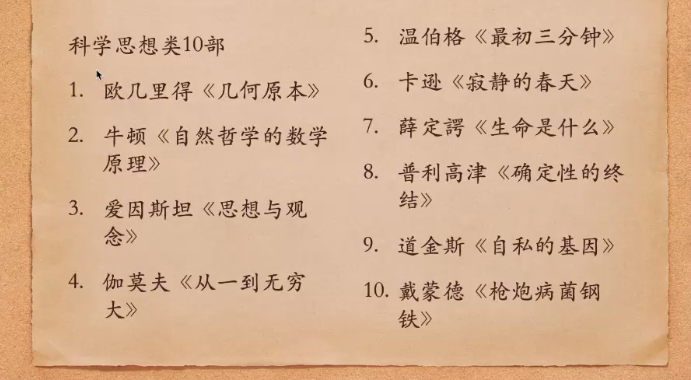 科学思想类10部
1. 欧几里得《几何原本》
2. 牛顿《自然哲学的数学
原理》
3. 爱因斯坦《思想与观
念》
4. 伽莫夫《从一到无穷
大》
5. 温伯格《最初三分钟》
6. 卡逊《寂静的春天》
7. 薛定谔《生命是什么》
8. 普利高津《确定性的终
结》
9. 道金斯《自私的基因》
10. 戴蒙德《枪炮病菌钢
铁》